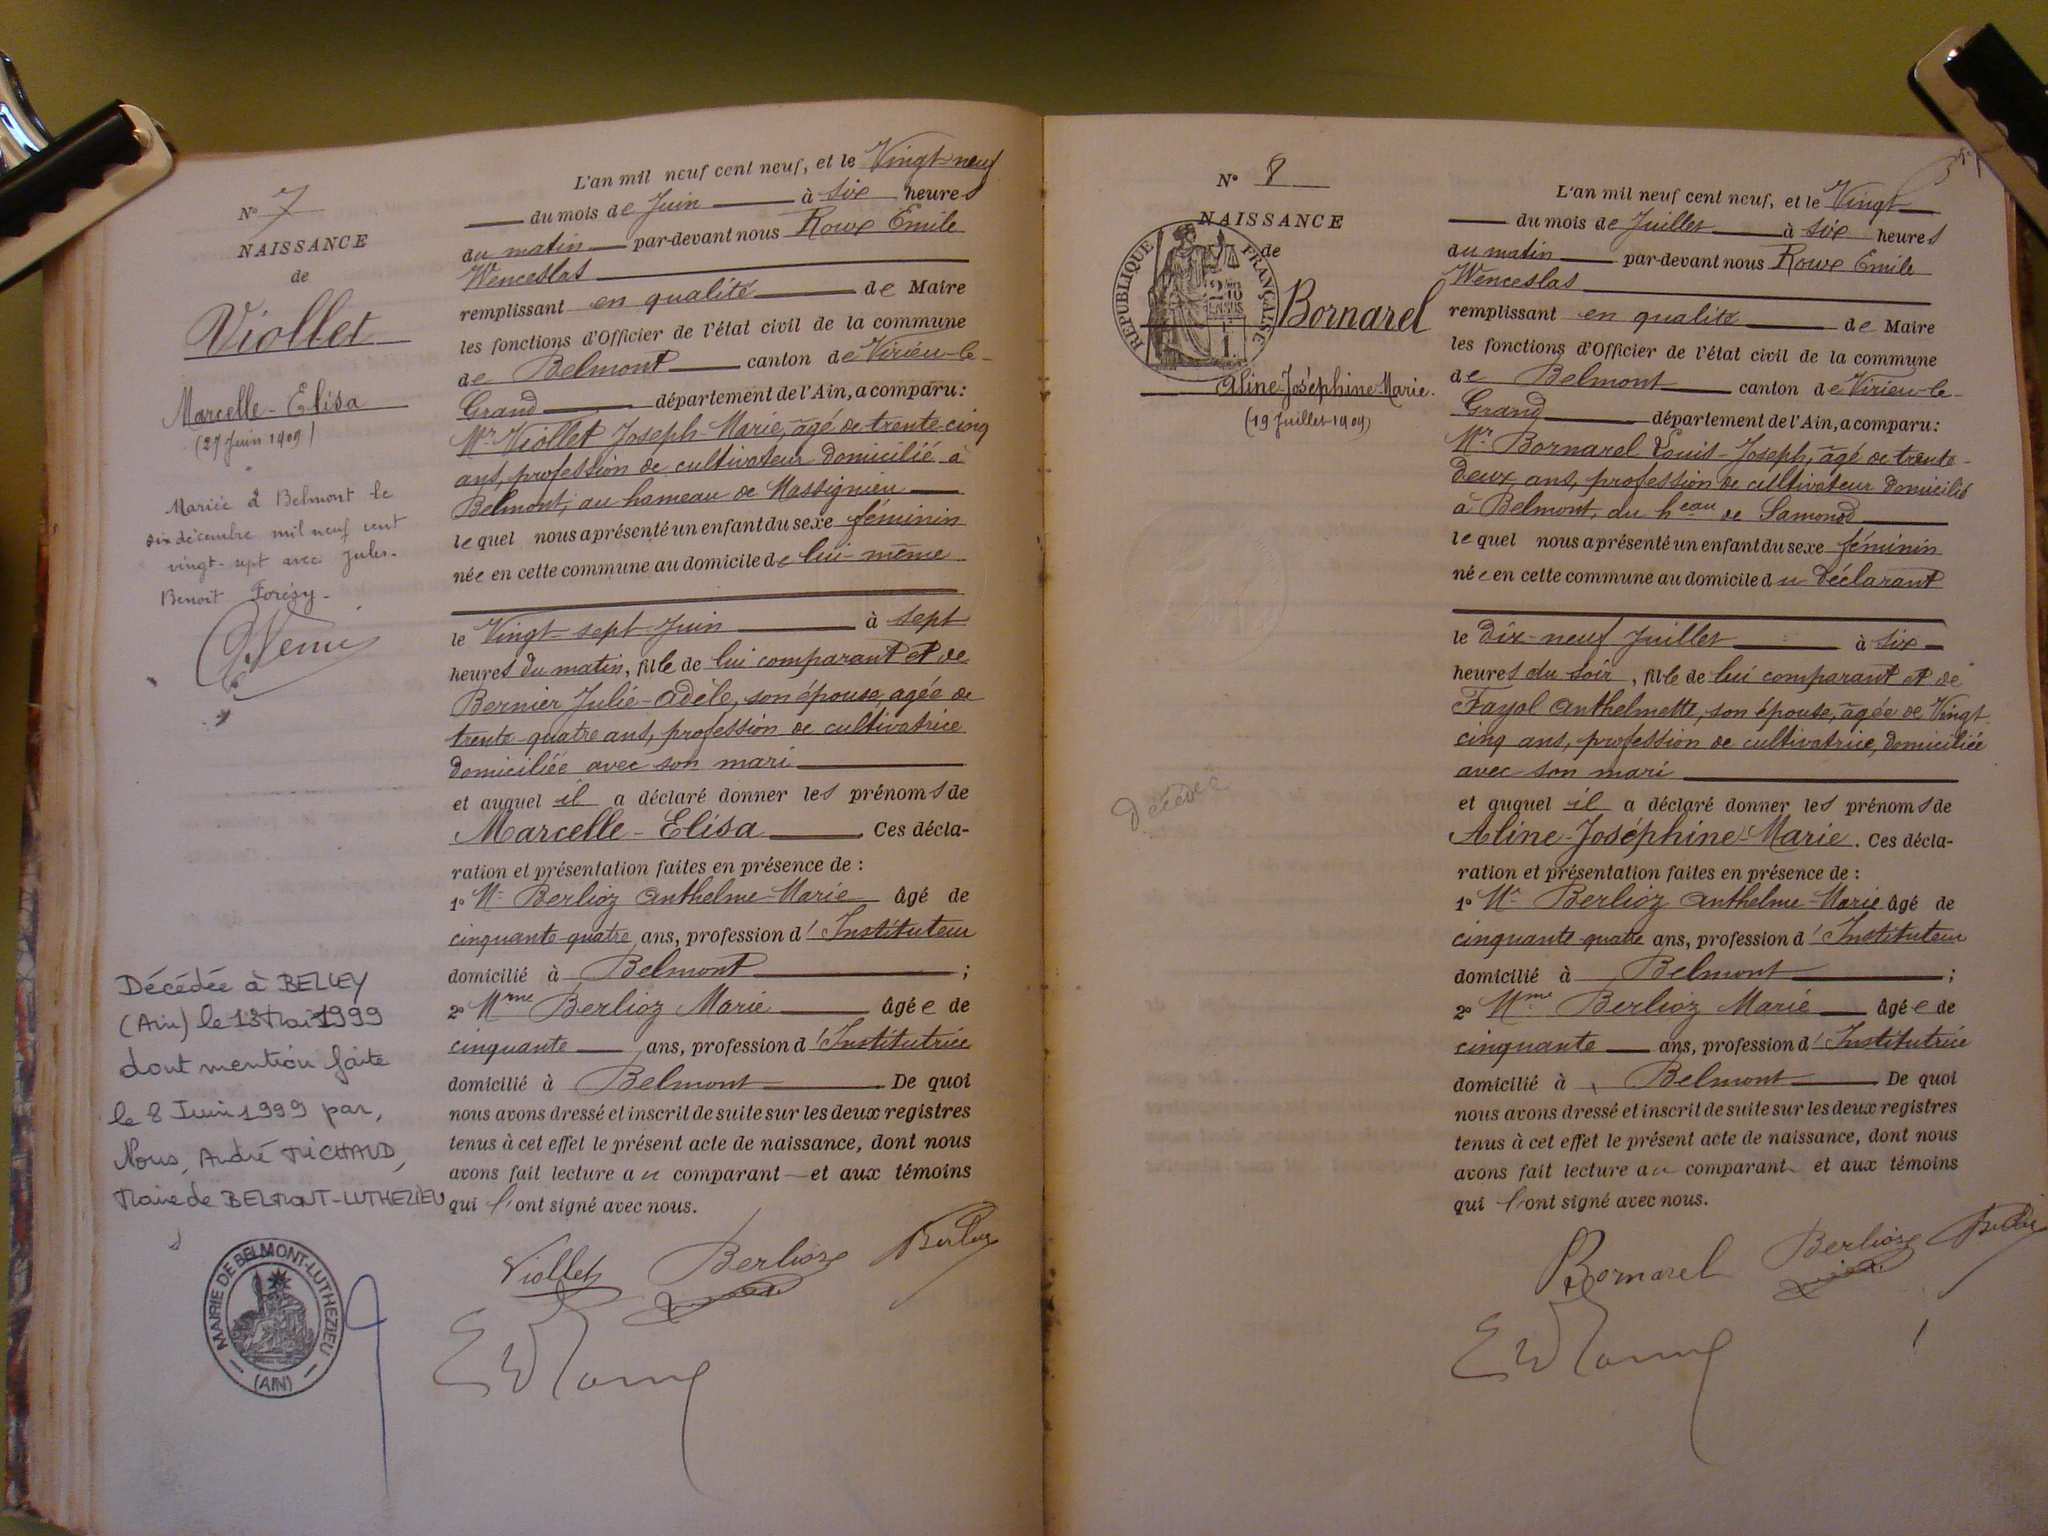 N° 7
NAISSANCE
de
Viollet
Marcelle-Elisa
(27 Juin 1909)
Mariée à Belmont le
six décembre mil neuf cent
vingt-sept avec Jules-
Benoit Forésy-
Décédée à BELLEY
(Ain) le 13 Mai 1999
dont mention faite
le 8 Juin 1999 par,
Nous, André MICHAUD,
Maire de BELMONT-LUTHEZIEU
MAIRIE DE BELMONT-LUTHEZIEU
(AIN)
L'an mil neuf cent neuf, et le Vingt-neuf
du mois de Juin à six heures
du matin par-devant nous Roux Emile
Wenceslas
remplissant en qualité de Maire
les fonctions d'Officier de l'état civil de la commune
de Belmont canton de Virieu-le-
Grand département de l'Ain, a comparu:
Mr Viollet Joseph-Marie, âgé de trente-cinq
ans, profession de cultivateur domicilié à
Belmont, au hameau de Massignieu
lequel nous a présenté un enfant du sexe féminin
née en cette commune au domicile de lui-même
le Vingt-sept Juin à sept
heures du matin, fille de lui comparant et de
Bernier Julie-Adèle, son épouse, agée de
trente-quatre ans, profession de cultivatrice
domiciliée avec son mari
et auquel il a déclaré donner les prénoms de
Marcelle-Elisa. Ces décla-
ration et présentation faites en présence de :
1° Mr Berlioz Anthelme-Marie âgé de
cinquante-quatre ans, profession d'Instituteur
domicilié à Belmont ;
2° Mme Berlioz Marie âgée de
cinquante ans, profession d'Institutrice
domicilié à Belmont De quoi
nous avons dressé et inscrit de suite sur les deux registres
tenus à cet effet le présent acte de naissance, dont nous
avons fait lecture au comparant et aux témoins
qui l'ont signé avec nous.
Viollet Berlioz Berlioz
N° 8
NAISSANCE
de
RÉPUBLIQUE FRANÇAISE
Bornarel
Aline-Joséphine-Marie.
(19 Juillet 1909)
Décédée
L'an mil neuf cent neuf, et le Vingt
du mois de Juillet à six heures
du matin par-devant nous Roux Emile
Wenceslas
remplissant en qualité de Maire
les fonctions d'Officier de l'état civil de la commune
de Belmont canton de Virieu-le-
Grand département de l'Ain, a comparu:
Mr Bornarel Louis-Joseph, âgé de trente-
deux ans, profession de cultivateur domicilié
à Belmont, au heau de Samonod
lequel nous a présenté un enfant du sexe féminin
née en cette commune au domicile du déclarant
le dix-neuf Juillet à six
heures du soir, fille de lui comparant et de
Fayol Anthelmette, son épouse, âgée de Vingt-
cinq ans, profession de cultivatrice, domiciliée
avec son mari
et auquel il a déclaré donner les prénoms de
Aline-Joséphine-Marie. Ces décla-
ration et présentation faites en présence de :
1° Mr Berlioz Anthelme-Marie âgé de
cinquante quatre ans, profession d'Instituteur
domicilié à Belmont ;
2° Mme Berlioz Marie âgée de
cinquante ans, profession d'Institutrice
domicilié à Belmont De quoi
nous avons dressé et inscrit de suite sur les deux registres
tenus à cet effet le présent acte de naissance, dont nous
avons fait lecture au comparant et aux témoins
qui l'ont signé avec nous.
Bornarel Berlioz